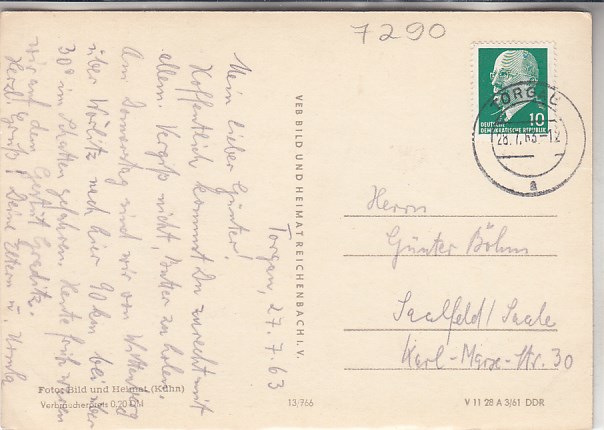 7290
Torgau, 27.7.63
Mein lieber Günter!
Hoffentlich kommst Du zurecht mit
allem. Vergiß nicht, Butter zu holen.
Am Donnerstag sind wir von Wittenberg
über Wörlitz nach hier 90 km bei über
30° im Schatten gefahren. Heute früh waren
wir auf dem Gestüt Graditz.
Herzl. Gruß! Deine Eltern u. Ursula
Foto: Bild und Heimat (Kühn)
Verbraucherpreis 0,20 DM
VEB BILD UND HEIMAT REICHENBACH i. V.
13/766
TORGAU
28.7.63-12
a
10
DEUTSCHE
DEMOKRATISCHE REPUBLIK
Herrn
Günter Böhm
Saalfeld/Saale
Karl-Marx-Str. 30
V 11 28 A 3/61 DDR